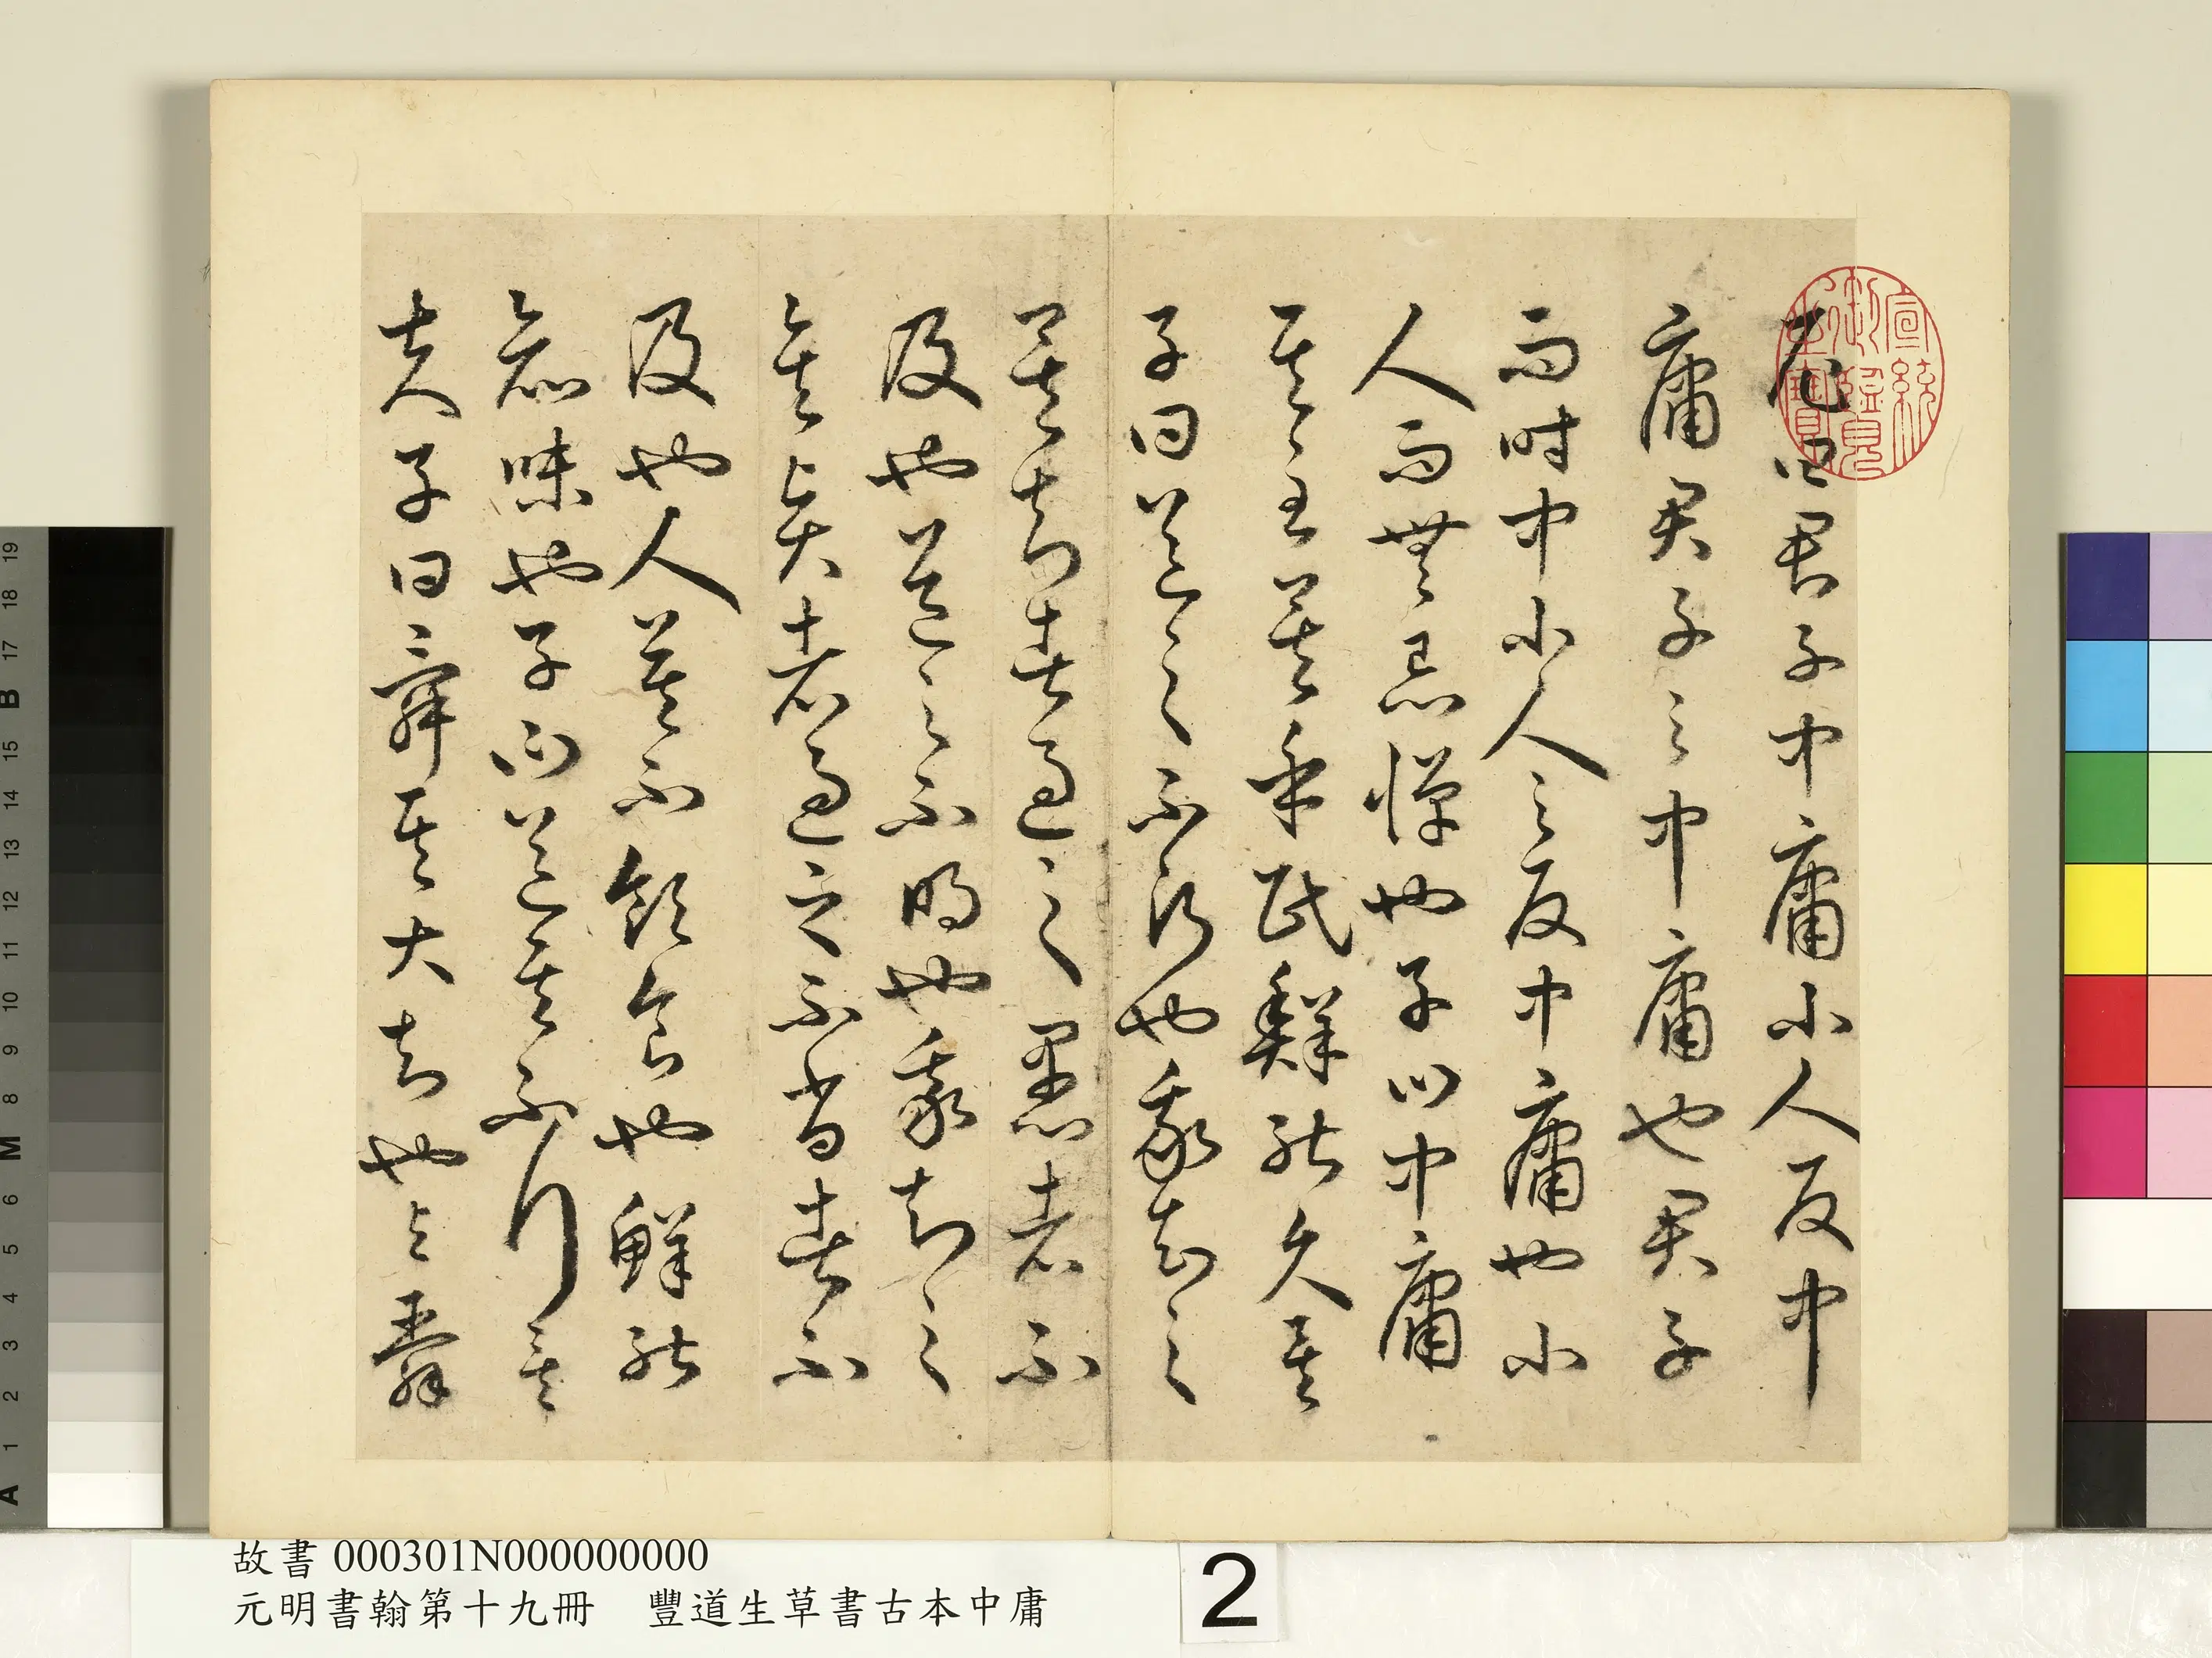 尼曰君子中庸小人反中
庸君子之中庸也君子
而時中小人之反中庸也小
人而無忌憚也子曰中庸
其至矣乎民鮮能久矣
子曰道之不行也我知之
矣知者過之愚者不
及也道之不明也我知之
矣賢者過之不肖者不
及也人莫不飲食也鮮能
知味也子曰道其不行矣
夫子曰舜其大知也與舜
宣統
御覽
之寶
故書 000301N000000000
元明書翰第十九冊　豐道生草書古本中庸
2
19
18
17
B
15
14
13
12
11
10
9
8
M
6
5
4
3
2
1
A